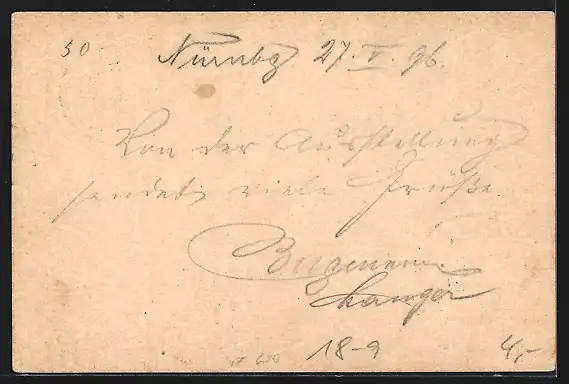 50
Nürnbg 27. V. 96.
Von der Ausstellung
sendet viele Grüße
Bergmann
Langer
18-9
4,-